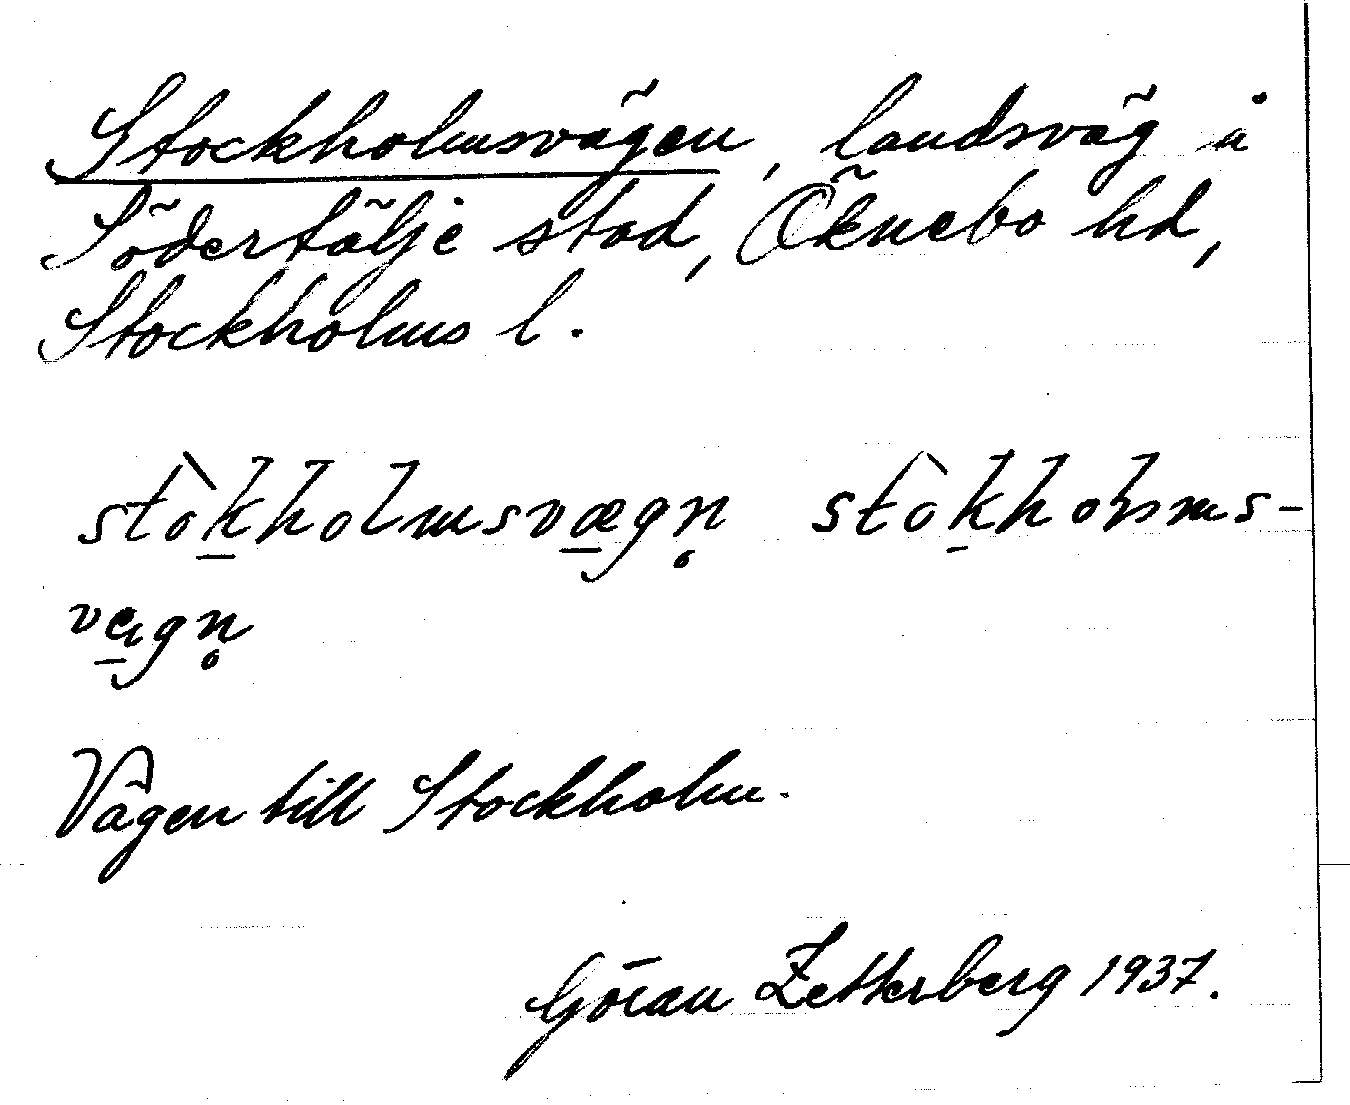 Stockholmsvägen, landsväg å
Södertälje stad, Öknebo hd,
Stockholms l.
stòk̲holmsvæ̲gn̥ stòk̲holms-
væ̲gn̥
Vägen till Stockholm.
Göran Zetterberg 1937.